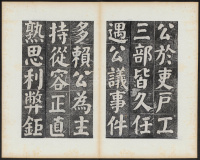 公於吏戶工
三部皆久任
遇公議事件
多賴公為主
持從容正直
熟思利弊鉅